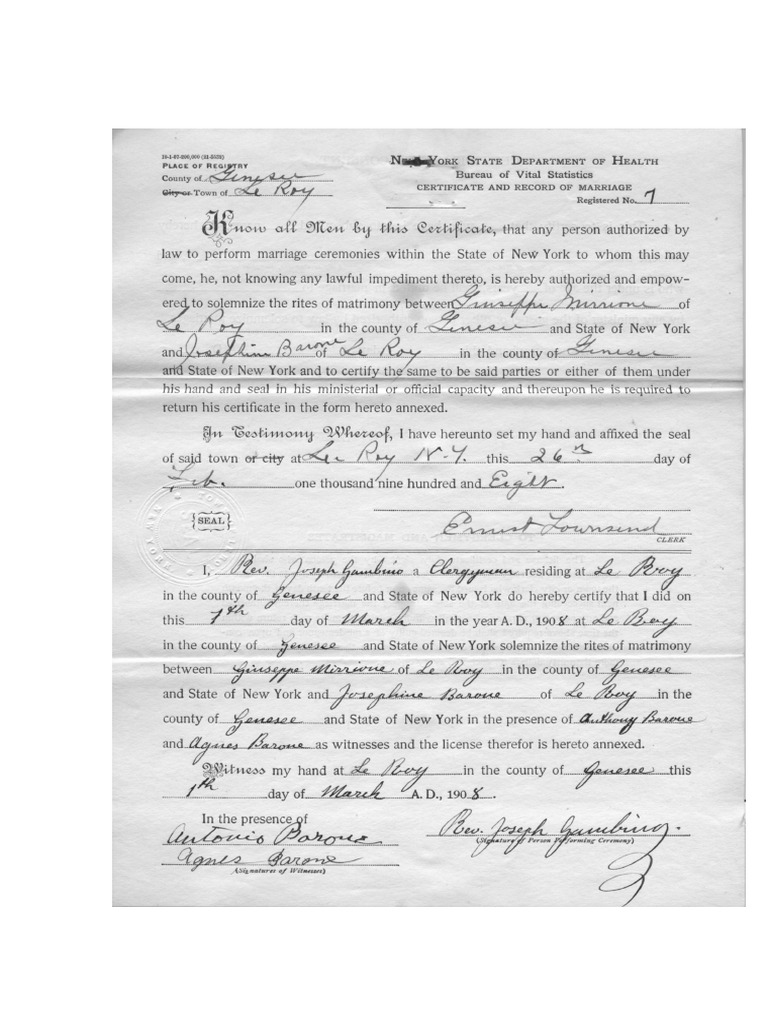 10-1-07-200,000 (21-5658)
PLACE OF REGISTRY
County of Genesee
City or Town of Le Roy
NEW YORK STATE DEPARTMENT OF HEALTH
Bureau of Vital Statistics
CERTIFICATE AND RECORD OF MARRIAGE
Registered No. 7
Know all Men by this Certificate, that any person authorized by
law to perform marriage ceremonies within the State of New York to whom this may
come, he, not knowing any lawful impediment thereto, is hereby authorized and empow-
ered to solemnize the rites of matrimony between Giuseppe Mirrione of
Le Roy in the county of Genesee and State of New York
and Josephine Barone of Le Roy in the county of Genesee
and State of New York and to certify the same to be said parties or either of them under
his hand and seal in his ministerial or official capacity and thereupon he is required to
return his certificate in the form hereto annexed.
In Testimony Whereof, I have hereunto set my hand and affixed the seal
of said town or city at Le Roy N.Y. this 26th day of
Feb. one thousand nine hundred and Eight.
{SEAL}
Ernest Townsend
CLERK
I, Rev. Joseph Gambino a Clergyman residing at Le Roy
in the county of Genesee and State of New York do hereby certify that I did on
this 1th day of March in the year A. D., 1908 at Le Roy
in the county of Genesee and State of New York solemnize the rites of matrimony
between Giuseppe Mirrione of Le Roy in the county of Genesee
and State of New York and Josephine Barone of Le Roy in the
county of Genesee and State of New York in the presence of Anthony Barone
and Agnes Barone as witnesses and the license therefor is hereto annexed.
Witness my hand at Le Roy in the county of Genesee this
1th day of March A. D., 1908.
In the presence of
Antonio Barone
Agnes Barone
(Signatures of Witnesses)
Rev. Joseph Gambino.
(Signature of Person Performing Ceremony)